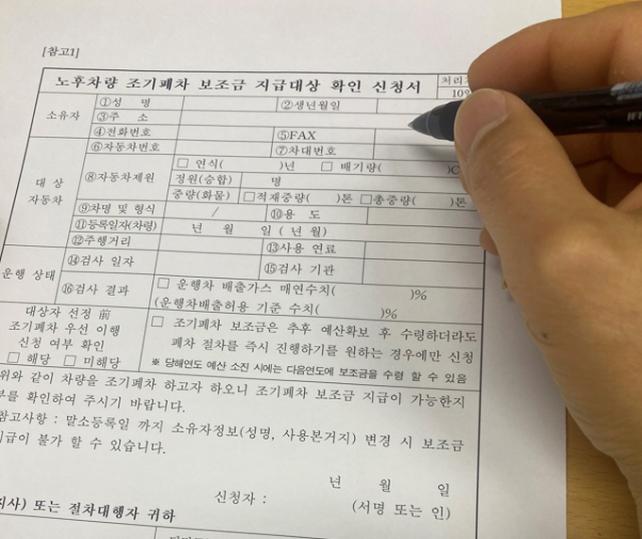 [참고1]
노후차량 조기폐차 보조금 지급대상 확인 신청서
처리
10
소유자
①성 명
②생년월일
③주 소
④전화번호
⑤FAX
대 상
자동차
⑥자동차번호
⑦차대번호
⑧자동차제원
□ 연식( )년 □ 배기량( )C
정원(승합) 명
중량(화물) □적재중량( )톤 □총중량( )톤
⑨차명 및 형식 /
⑩용 도
⑪등록일자(차령) 년 월 일 ( 년 월)
⑫주행거리
⑬사용 연료
운행 상태
⑭검사 일자
⑮검사 기관
⑯검사 결과
□ 운행차 배출가스 매연수치( )%
(운행차배출허용 기준 수치( )%
대상자 선정 前
조기폐차 우선 이행
신청 여부 확인
□ 해당 □ 미해당
□ 조기폐차 보조금은 추후 예산확보 후 수령하더라도
폐차 절차를 즉시 진행하기를 원하는 경우에만 신청
※ 당해연도 예산 소진 시에는 다음연도에 보조금을 수령 할 수 있음
위와 같이 차량을 조기폐차 하고자 하오니 조기폐차 보조금 지급이 가능한지
부를 확인하여 주시기 바랍니다.
참고사항 : 말소등록일 까지 소유자정보(성명, 사용본거지) 변경 시 보조금
지급이 불가 할 수 있습니다.
년 월 일
신청자 : (서명 또는 인)
지사) 또는 절차대행자 귀하